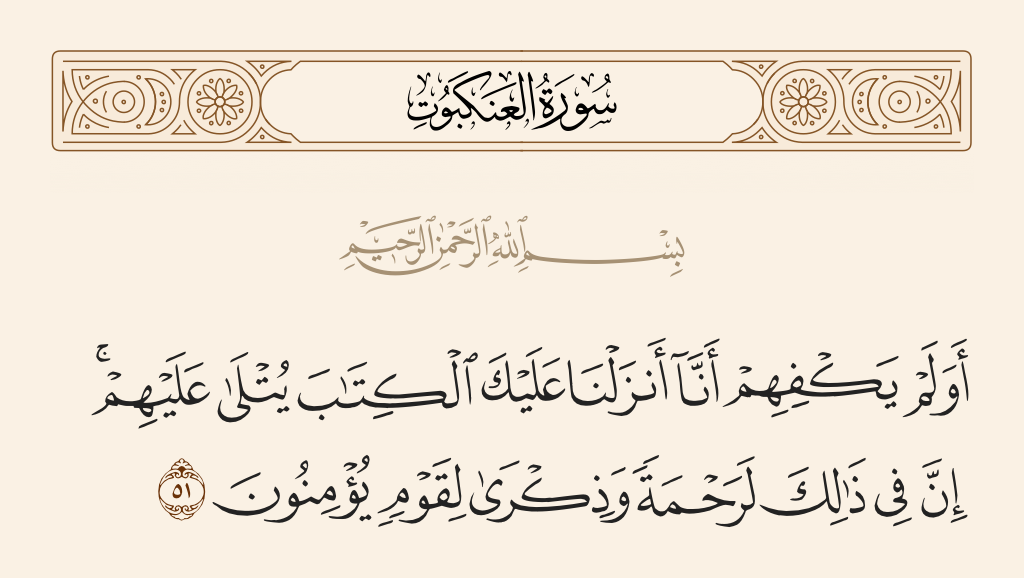 سُورَةُ الْعَنكَبُوتِ
بِسْمِ ٱللَّهِ ٱلرَّحْمَٰنِ ٱلرَّحِيمِ
أَوَلَمْ يَكْفِهِمْ أَنَّآ أَنزَلْنَا عَلَيْكَ ٱلْكِتَٰبَ يُتْلَىٰ عَلَيْهِمْ ۚ
إِنَّ فِى ذَٰلِكَ لَرَحْمَةً وَذِكْرَىٰ لِقَوْمٍ يُؤْمِنُونَ ٥١